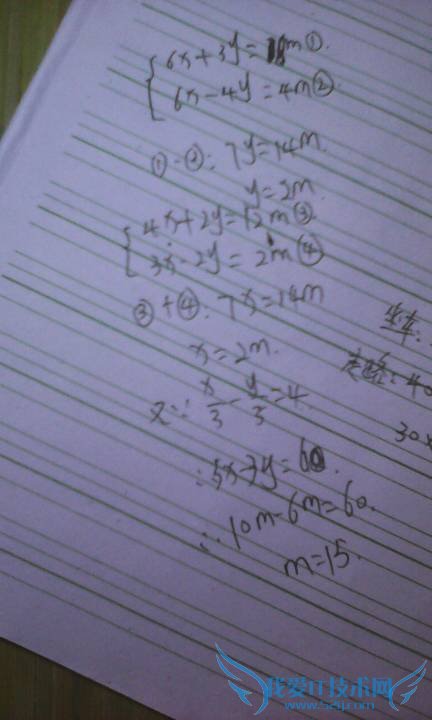 6x+3y=18m①
6x-4y=4m②
①-②: 7y=14m.
y=2m.
4x+2y=12m③
3x-2y=2m④
③+④: 7x=14m
x=2m.
又∵ x/3-y/5=4
∴5x-3y=60.
∴10m-6m=60.
m=15.
坐车:
走路:40
30x
我爱IT技术网
www.52ij.com